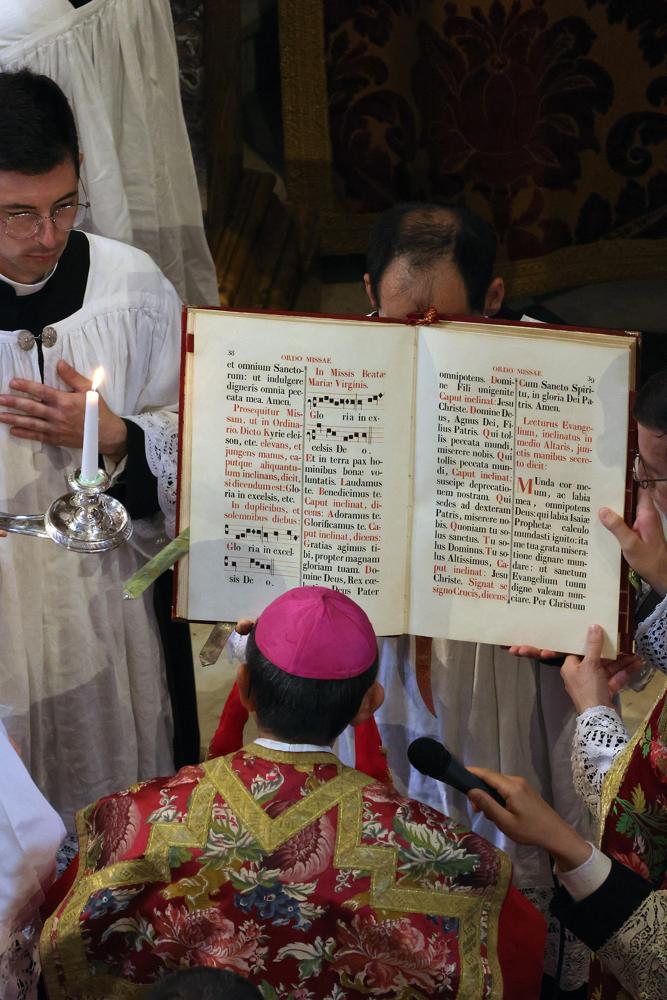 38
ORDO MISSAE
et omnium Sancto-
rum: ut indulgere
digneris omnia pec-
cata mea. Amen.
Prosequitur Mis-
sam, ut in Ordina-
rio. Dicto Kyrie elei-
son, etc. elevans, et
jungens manus, ca-
putque aliquantu-
lum inclinans, dicit,
si dicendum est: Glo-
ria in excelsis, etc.
In duplicibus, et
solemnibus diebus:
Glo ria in excel-
sis De o.
In Missis Beatæ
Mariæ Virginis.
Glo ria in ex-
celsis De o.
Et in terra pax ho-
minibus bonæ vo-
luntatis. Laudamus
te. Benedicimus te.
Caput inclinat, di-
cens: Adoramus te.
Glorificamus te. Ca-
put inclinat, dicens:
Gratias agimus ti-
bi, propter magnam
gloriam tuam. Do-
mine Deus, Rex cœ-
Deus Pater
ORDO MISSAE
39
omnipotens. Domi-
ne Fili unigenite
Caput inclinat: Jesu
Christe. Domine De-
us, Agnus Dei, Fi-
lius Patris. Qui tol-
lis peccata mundi,
miserere nobis. Qui
tollis peccata mun-
di, Caput inclinat:
suscipe deprecatio-
nem nostram. Qui
sedes ad dexteram
Patris, miserere no-
bis. Quoniam tu so-
lus sanctus. Tu so-
lus Dominus. Tu so-
lus Altissimus, Ca-
put inclinat: Jesu
Christe. Signat se
signo Crucis, dicens:
Cum Sancto Spiri-
tu, in gloria Dei Pa-
tris. Amen.
Lecturus Evange-
lium, inclinatus in
medio Altaris, jun-
ctis manibus secre-
to dicit:
Munda cor me-
um, ac labia
mea, omnipotens
Deus, qui labia Isaiæ
Prophetæ calculo
mundasti ignito: ita
me tua grata misera-
tione dignare mun-
dare: ut sanctum
Evangelium tuum
digne valeam nun-
ciare. Per Christum